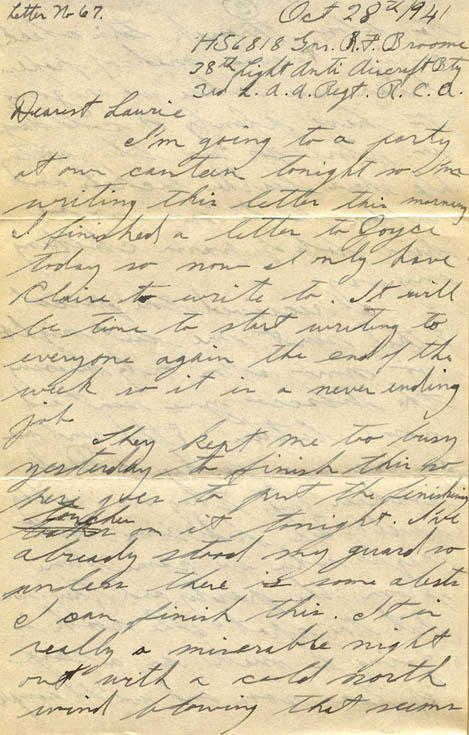 Letter No 67.
Oct 28th/1941
H56818 Gnr. R.F. Broome
38th Light Anti Aircraft Bty
3rd L.A.A. Regt. R.C.A.
Dearest Laurie
I'm going to a party
at our canteen tonight so I'm
writing this letter this morning
I finished a letter to Joyce
today so now I only have
Claire to write to. It will
be time to start writing to
everyone again the end of the
week so it is a never ending
job.
They kept me too busy
yesterday to finish this so
here goes to put the finishing
touches
on it tonight. I've
already stood my guard so
unless there is some alert
I can finish this. It is
really a miserable night
out with a cold north
wind blowing that seems